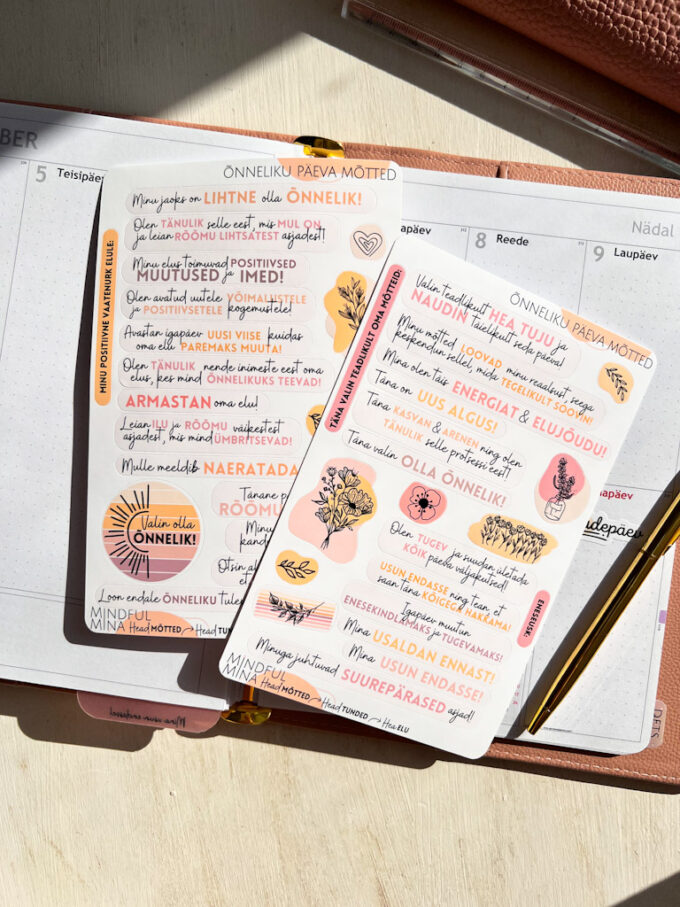 BER
5 Teisipäe
ÕNNELIKU PÄEVA MÕTTED
MINU POSITIIVNE VAATENURK ELULE:
Minu jaoks on LIHTNE olla ÕNNELIK!
Olen TÄNULIK selle eest, mis MUL ON
ja leian RÕÕMU LIHTSATEST asjadest!
Minu elus toimuvad POSITIIVSED
MUUTUSED ja IMED!
Olen avatud uutele VÕIMALUSTELE
ja POSITIIVSETELE kogemustele!
Avastan igapäev UUSI VIISE kuidas
oma elu PAREMAKS MUUTA!
Olen TÄNULIK nende inimeste eest oma
elus, kes mind ÕNNELIKUKS TEEVAD!
ARMASTAN oma elu!
Leian ILU ja RÕÕMU väikestest
asjadest, mis mind ÜMBRITSEVAD!
Mulle meeldib NAERATADA
Tänane p
RÕÕMU
Minu
kand
Otsin al
Valin olla
ÕNNELIK!
Loon endale ÕNNELIKU tule
MINDFUL
MINA Head MÕTTED → Head TUNDE
apäev
8 Reede
Nädal
9 Laupäev
ÕNNELIKU PÄEVA MÕTTED
TÄNA VALIN TEADLIKULT OMA MÕTTEID:
Valin teadlikult HEA TUJU ja
NAUDIN täielikult seda päeva!
Minu mõtted LOOVAD minu reaalsust, seega
keskendun sellel, mida TEGELIKULT SOOVIN!
Mina olen täis ENERGIAT & ELUJÕUDU!
Täna on UUS ALGUS!
Täna KASVAN & ARENEN ning olen
TÄNULIK selle protsessi eest!
Täna valin OLLA ÕNNELIK!
Olen TUGEV ja suudan ületada
KÕIK päeva väljakutsed!
ENESEUSK:
USUN ENDASSE ning tean, et
saan täna KÕIGEGA HAKKAMA!
Igapäev muutun
ENESEKINDLAMAKS ja TUGEVAMAKS!
Mina USALDAN ENNAST!
Mina USUN ENDASSE!
Minuga juhtuvad SUUREPÄRASED asjad!
MINDFUL
MINA Head MÕTTED → Head TUNDED → Hea ELU
apäev
depäev